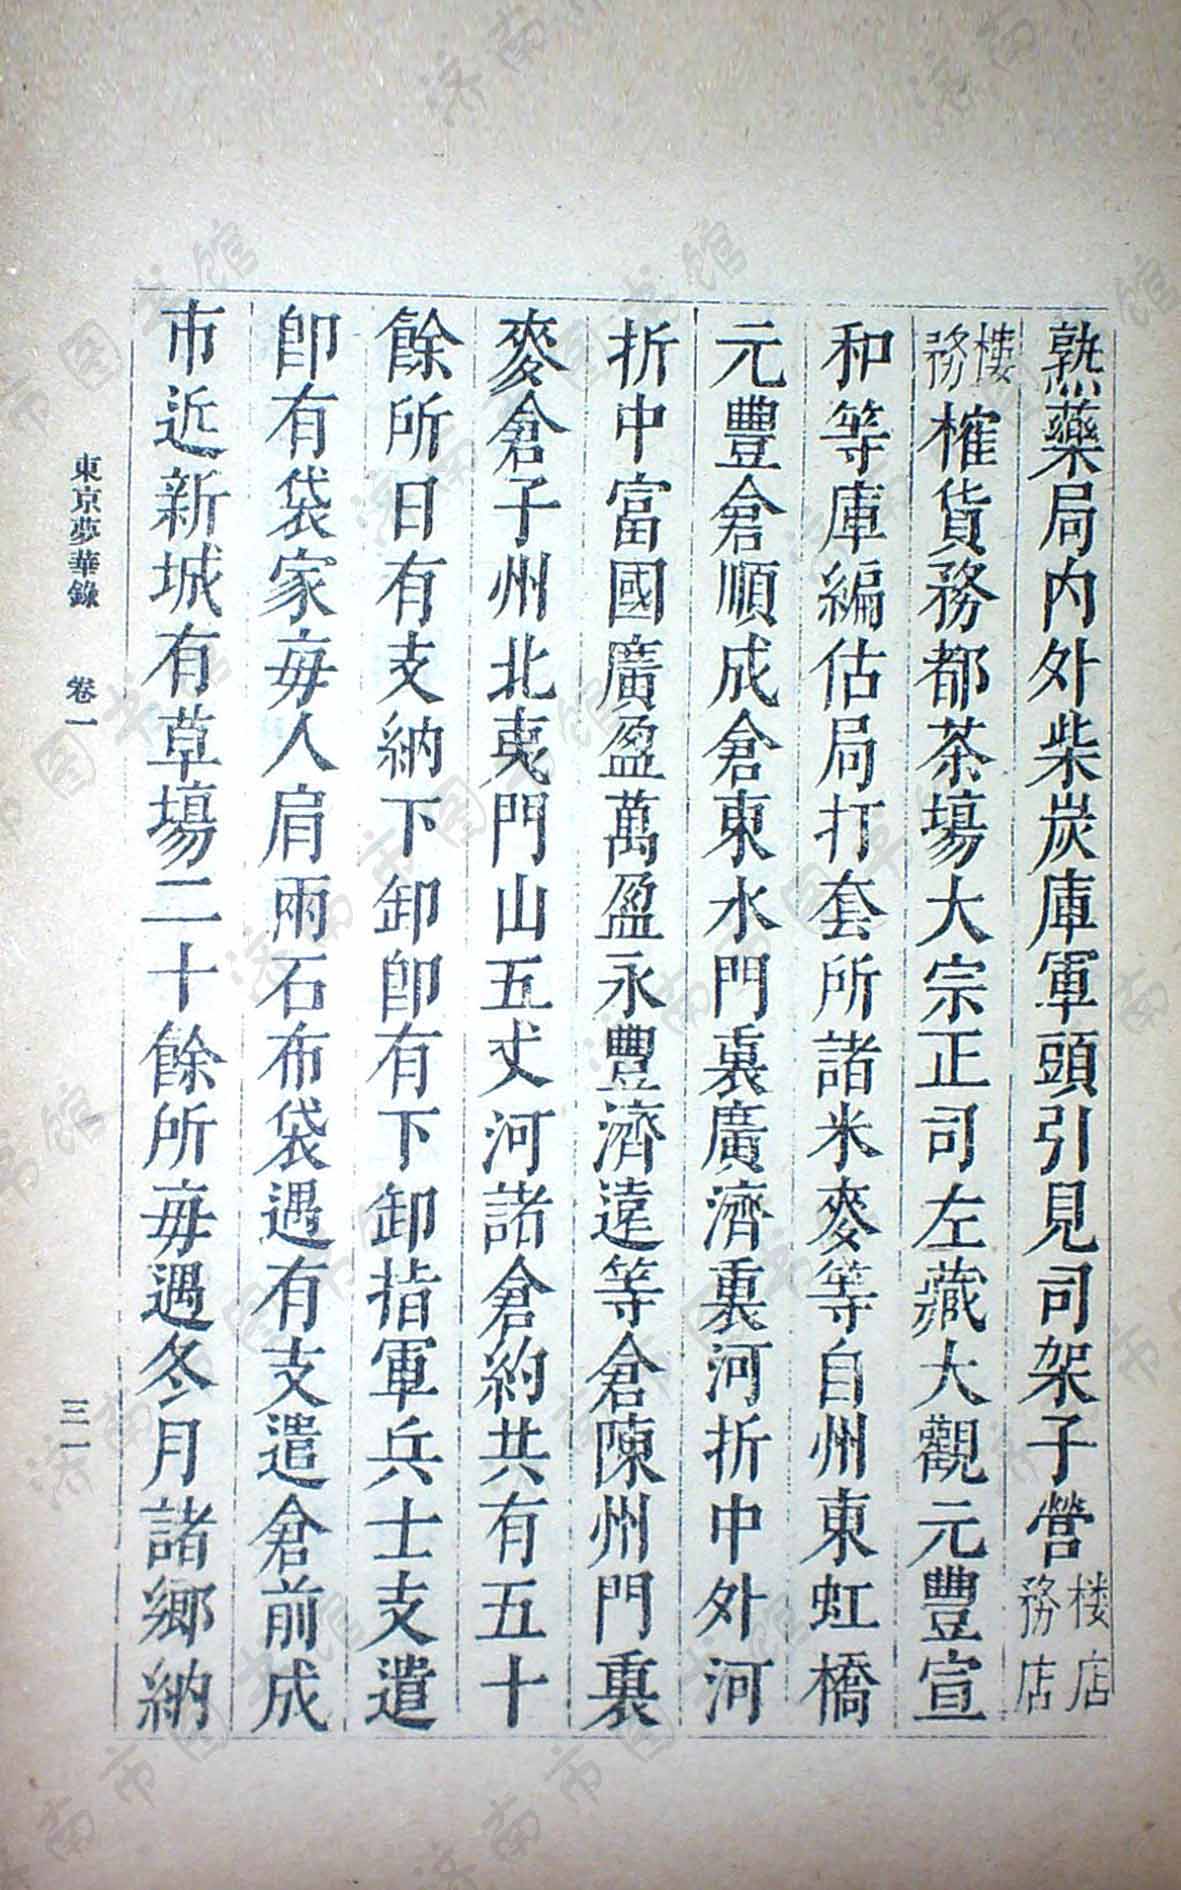 熟藥局内外柴炭庫軍頭引見司架子營楼店務店
楼務榷貨務都茶塲大宗正司左藏大觀元豐宣
和等庫編估局打套所諸米麥等自州東虹橋
元豐倉順成倉東水門裏廣濟裏河折中外河
折中富國廣盈萬盈永豐濟遠等倉陳州門裏
麥倉子州北夷門山五丈河諸倉約共有五十
餘所日有支納下卸即有下卸指軍兵士支遣
即有袋家每人肩兩石布袋遇有支遣倉前成
市近新城有草塲二十餘所每遇冬月諸鄉納
東京夢華錄 卷一 三一
济南市图书馆